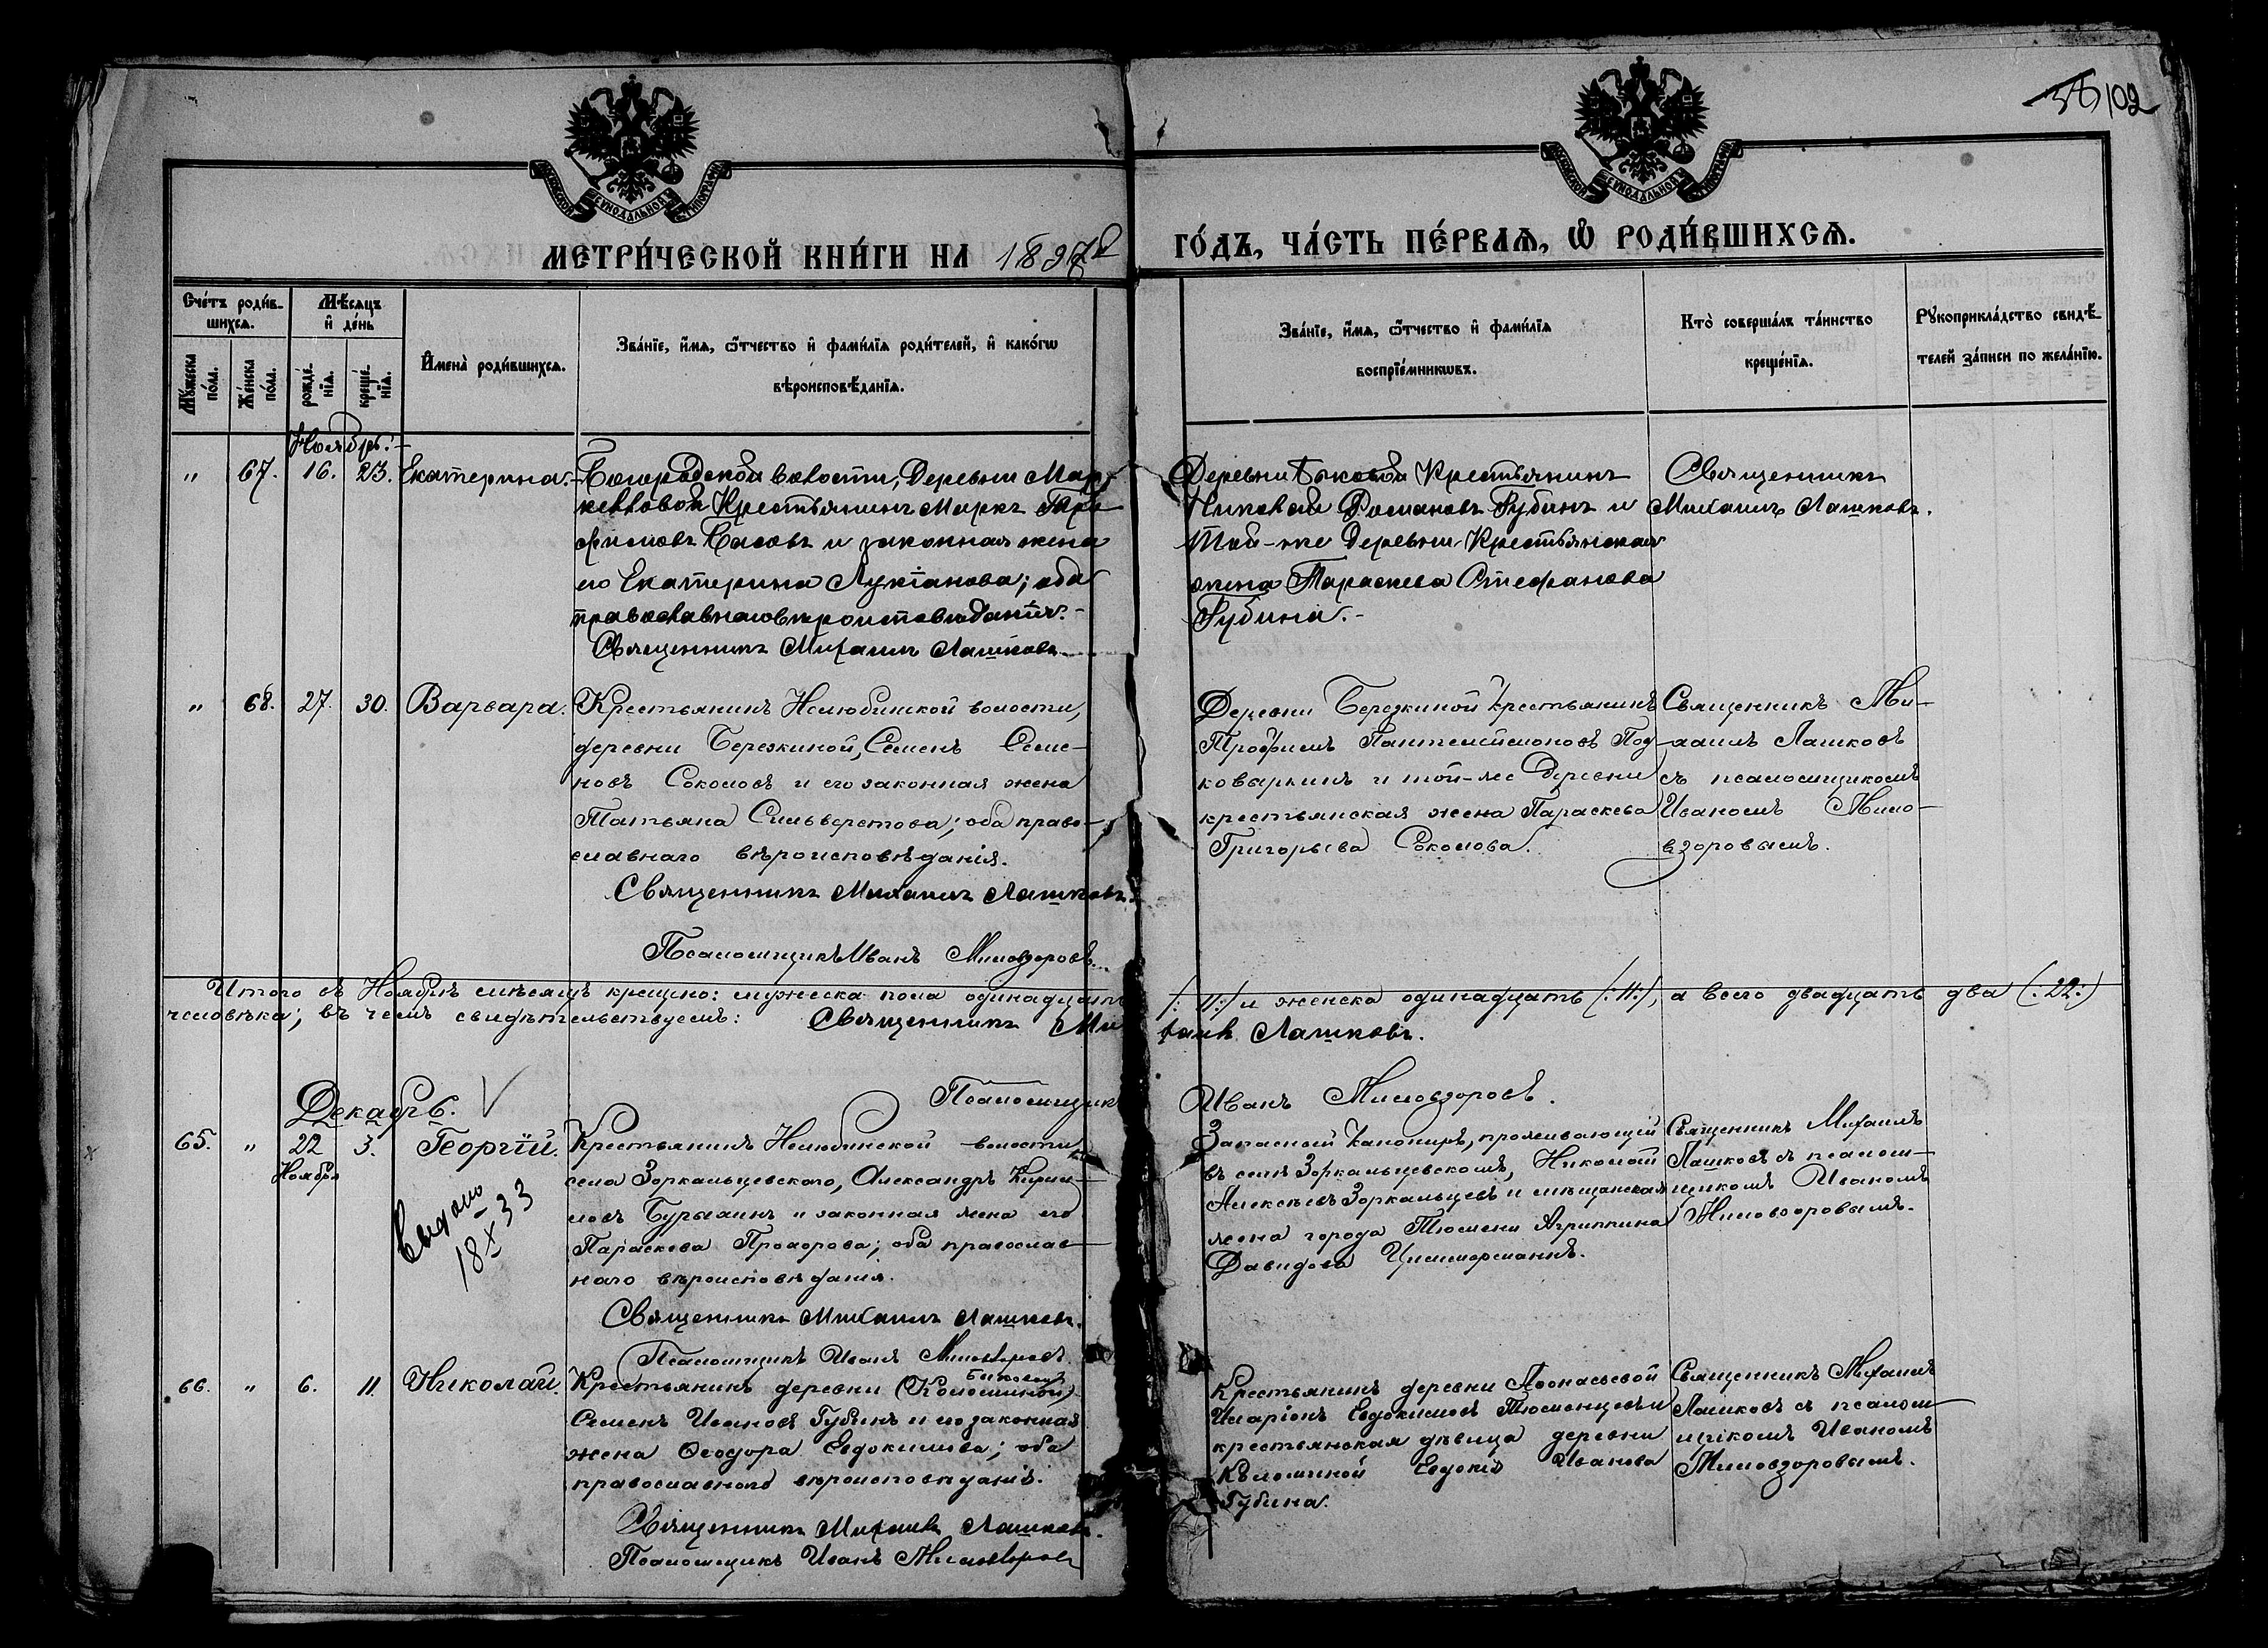 102
МЕТРИ́ЧЕСКОЙ КНИ́ГИ НА 1897
ГО́ДЪ, ЧА́СТЬ ПЕ́РВАѦ, Ѡ҆ РОДИ́ВШИХСѦ.
Сче́тъ роди́в-
шихсѧ.
Мѣ́сѧцъ
и҆ де́нь
Мꙋ́жеска
по́ла.
Же́нска
по́ла.
рожде́-
нїѧ.
креще́-
нїѧ.
И҆мена̀ роди́вшихсѧ.
Зва́нїе, и҆́мѧ, ѻ҆́тчество и҆ фами́лїѧ роди́телей, и҆ како́гѡ
вѣроисповѣ́данїѧ.
Зва́нїе, и҆́мѧ, ѻ҆́тчество и҆ фами́лїѧ
воспрїе́мникѡвъ.
Кто̀ соверша́лъ та́инство
креще́нїѧ.
Рꙋкоприкла́дство свидѣ́-
телей за́писи по жела́нїю.
Ноябрь:
" 67. 16. 23. Екатерина.
Богородской волости, Деревни Мар-
Крестьянинъ Маркъ Тро-
фимовъ Басовъ и законная жена
его Екатерина Лукіанова; оба
православнаго вѣроисповѣданія.
Священникъ Михаилъ Лашковъ.
Деревни Быковой Крестьянинъ
Николай Романовъ Губинъ и
той-же Деревни Крестьянская
жена Параскева Стефанова
Губина.
Священникъ
Михаилъ Лашковъ.
" 68. 27. 30. Варвара.
Крестьянинъ Нелюбинской волости,
деревни Березкиной, Семенъ Семе-
новъ Соколовъ и его законная жена
Татьяна Сильверстова; оба право-
славнаго вѣроисповѣданія.
Священникъ Михаилъ Лашковъ.
Псаломщикъ Иванъ Миловзоровъ.
Деревни Березкиной крестьянинъ
Трофимъ Пантелеимоновъ Под-
коваркинъ и той-же Деревни
крестьянская жена Параскева
Григорьева Соколова.
Священникъ Ми-
хаилъ Лашковъ
съ псаломщикомъ
Иваномъ Мило-
взоровымъ.
Итого въ Ноябрѣ мѣсяцѣ крещено: мужеска пола одинадцать /:11:/ и женска одинадцать /:11:/, а всего двадцать два (:22:)
человѣка; въ чемъ свидѣтельствуемъ: Священникъ Михаилъ Лашковъ.
Псаломщикъ Иванъ Миловзоровъ.
Декабрь.
65. " 22 3. Георгій.
Ноября
18 X 33
Крестьянинъ Нелюбинской волости
села Зоркальцевскаго, Александръ Кирил-
ловъ Бурыхинъ и законная жена его
Параскева Прохорова; оба православ-
наго вѣроисповѣданія.
Священникъ Михаилъ Лашковъ.
Псаломщикъ Иванъ Миловзоровъ.
Запасный Канониръ, проживающій
въ селѣ Зоркальцевскомъ, Николай
Алексѣевъ Зоркальцевъ и мѣщанская
жена города Тюмени Агриппина
Давидова Циммерманъ.
Священникъ Михаилъ
Лашковъ съ псалом-
щикомъ Иваномъ
Миловзоровымъ.
66. " 6. 11. Николай.
Быковой
Крестьянинъ деревни (Коломиной)
Семенъ Ивановъ Губинъ и его законная
жена Ѳеодора Евдокимова; оба
православнаго вѣроисповѣданія.
Священникъ Михаилъ Лашковъ.
Псаломщикъ Иванъ Миловзоровъ
Крестьянинъ деревни Аѳонасьевой
Иларіонъ Евдокимовъ Тюменцевъ и
крестьянская дѣвица деревни
Коломиной Евдокія Иванова
Губина.
Священникъ Михаилъ
Лашковъ съ псалом-
щикомъ Иваномъ
Миловзоровымъ.